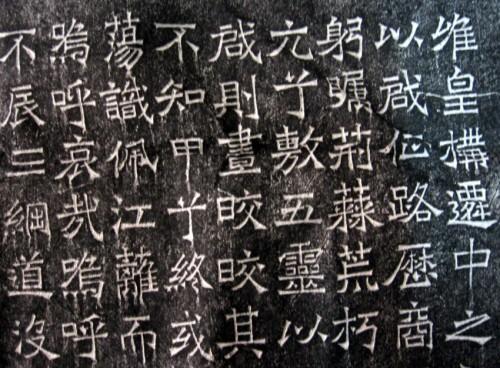 惟皇構遷中之
以啟路歷商
躬矚荊荒朽
元兮敷五靈以
啟則晝皎皎其
不知甲兮終或
蕩識佩江蘺而
嗚呼哀哉嗚呼
不辰三綱道沒